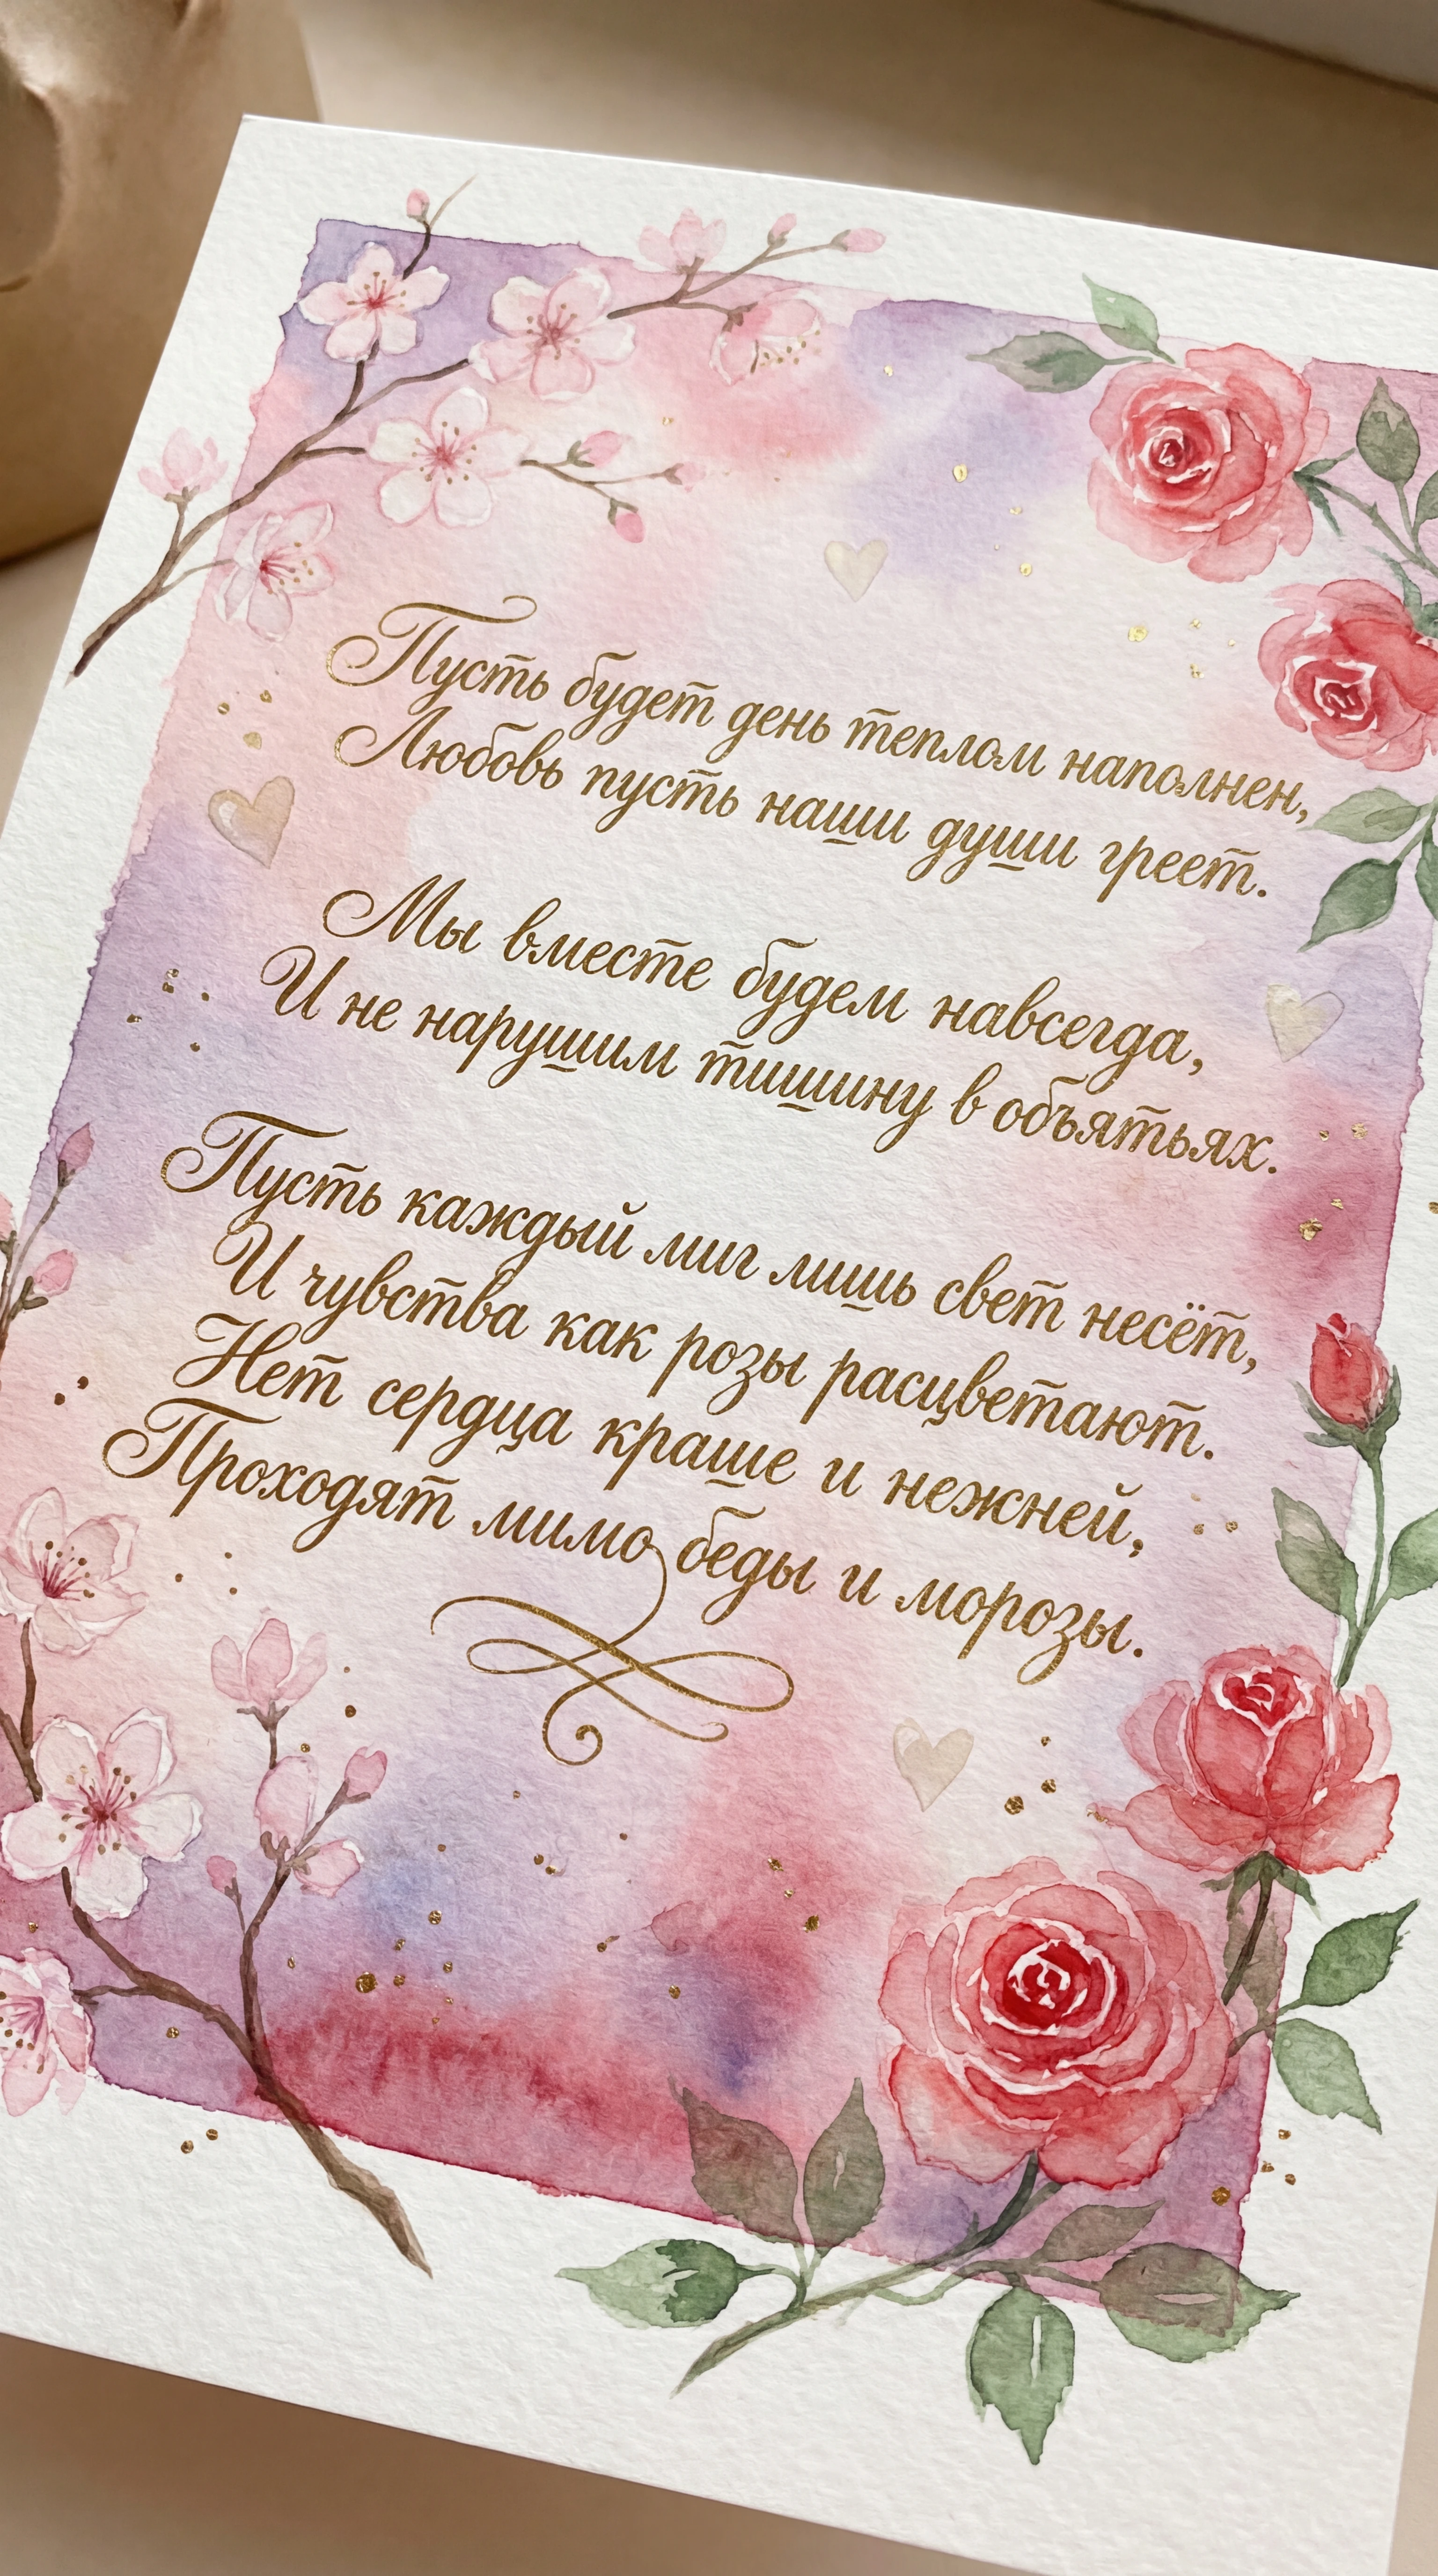 Пусть будет день теплом наполнен,
Любовь пусть наши души греет.
Мы вместе будем навсегда,
И не нарушим тишину в объятьях.
Пусть каждый миг лишь свет несёт,
И чувства как розы расцветают.
Нет сердца краше и нежней,
Проходят мимо беды и морозы.